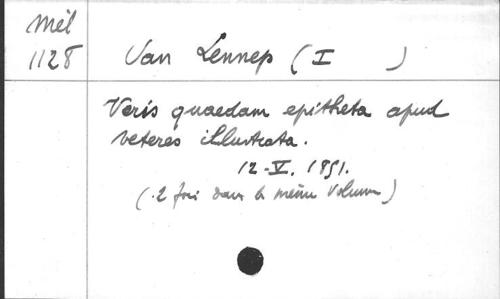 Mél
1128
Van Lennep (I )
Veris quaedam epitheta apud
veteres illustrata.
12-V. 1851.
(2 fois dans le même volume)